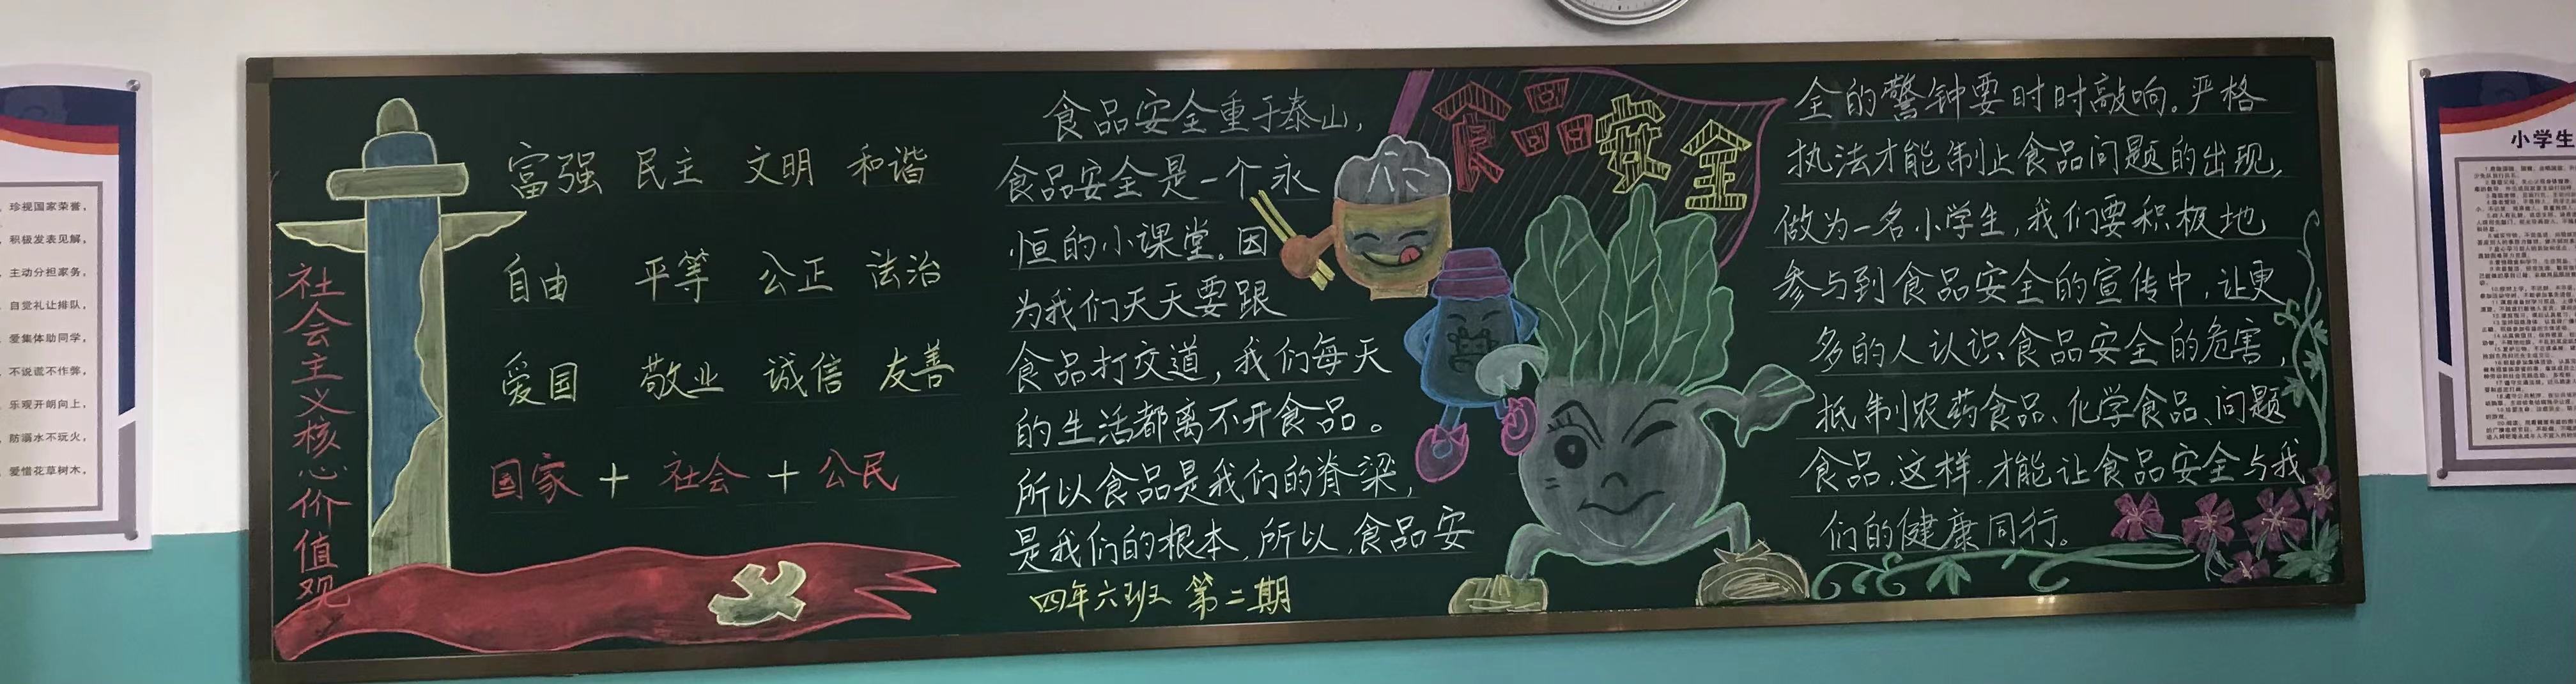 珍视国家荣誉，
积极发表见解，
主动分担家务，
自觉礼让排队，
爱集体助同学，
不说谎不作弊，
乐观开朗向上，
防溺水不玩火，
爱惜花草树木，
社会主义核心价值观
富强 民主 文明 和谐
自由 平等 公正 法治
爱国 敬业 诚信 友善
国家 + 社会 + 公民
食品安全重于泰山，
食品安全是一个永
恒的小课堂。因
为我们天天要跟
食品打交道，我们每天
的生活都离不开食品。
所以食品是我们的脊梁，
是我们的根本，所以，食品安
四年六班 第二期
食品安全
全的警钟要时时敲响。严格
执法才能制止食品问题的出现，
做为一名小学生，我们要积极地
参与到食品安全的宣传中，让更
多的人认识食品安全的危害，
抵制农药食品、化学食品、问题
食品，这样，才能让食品安全与我
们的健康同行。
小学生